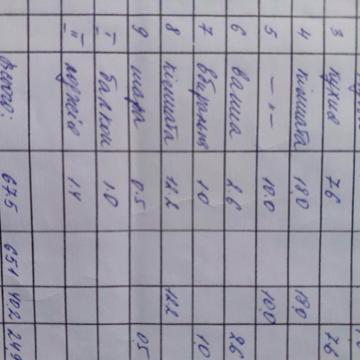 3 кухня 7.6 7.6
4 кімната 18.0 18.0
5 —"— 10.0 10.0
6 ванна 2.6 2.6
7 вбиральня 1.0 1.0
8 кімната 12.2 12.2
9 шафа 0.5 0.5
I балкон 1.0
II лоджія 1.4
Всього: 67.5 65.1 40.2 24.9